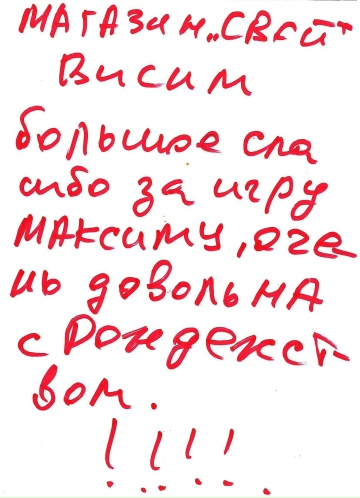 МАГАЗИН „СВЕЙ"
Висим
большое спа
сибо за игру
МАКСИМУ, оче
нь довольна
с Рождекст-
вом.
! ! ! !